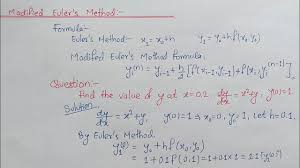 Modified Euler's Method:-
Formula:-
Euler's Method:- x₁ = x₀+h y₁ = y₀+h f(x₀,y₀)
Modified Euler's Method formula
yᵢ⁽ⁿ⁾ = yᵢ₋₁ + h/2 [f(xᵢ₋₁,yᵢ₋₁)+f(xᵢ,yᵢ⁽ⁿ⁻¹⁾)]
Question:-
find the value of y at x=0.2 dy/dx = x²+y, y(0)=1
Solution
dy/dx = x²+y y(0)=1 ⇒ x₀=0, y₀=1, Let h=0.1
By Euler's Method
y₁⁽⁰⁾ = y₀ + h f(x₀,y₀)
= 1+0.1 f(0,1) = 1+0.1×1